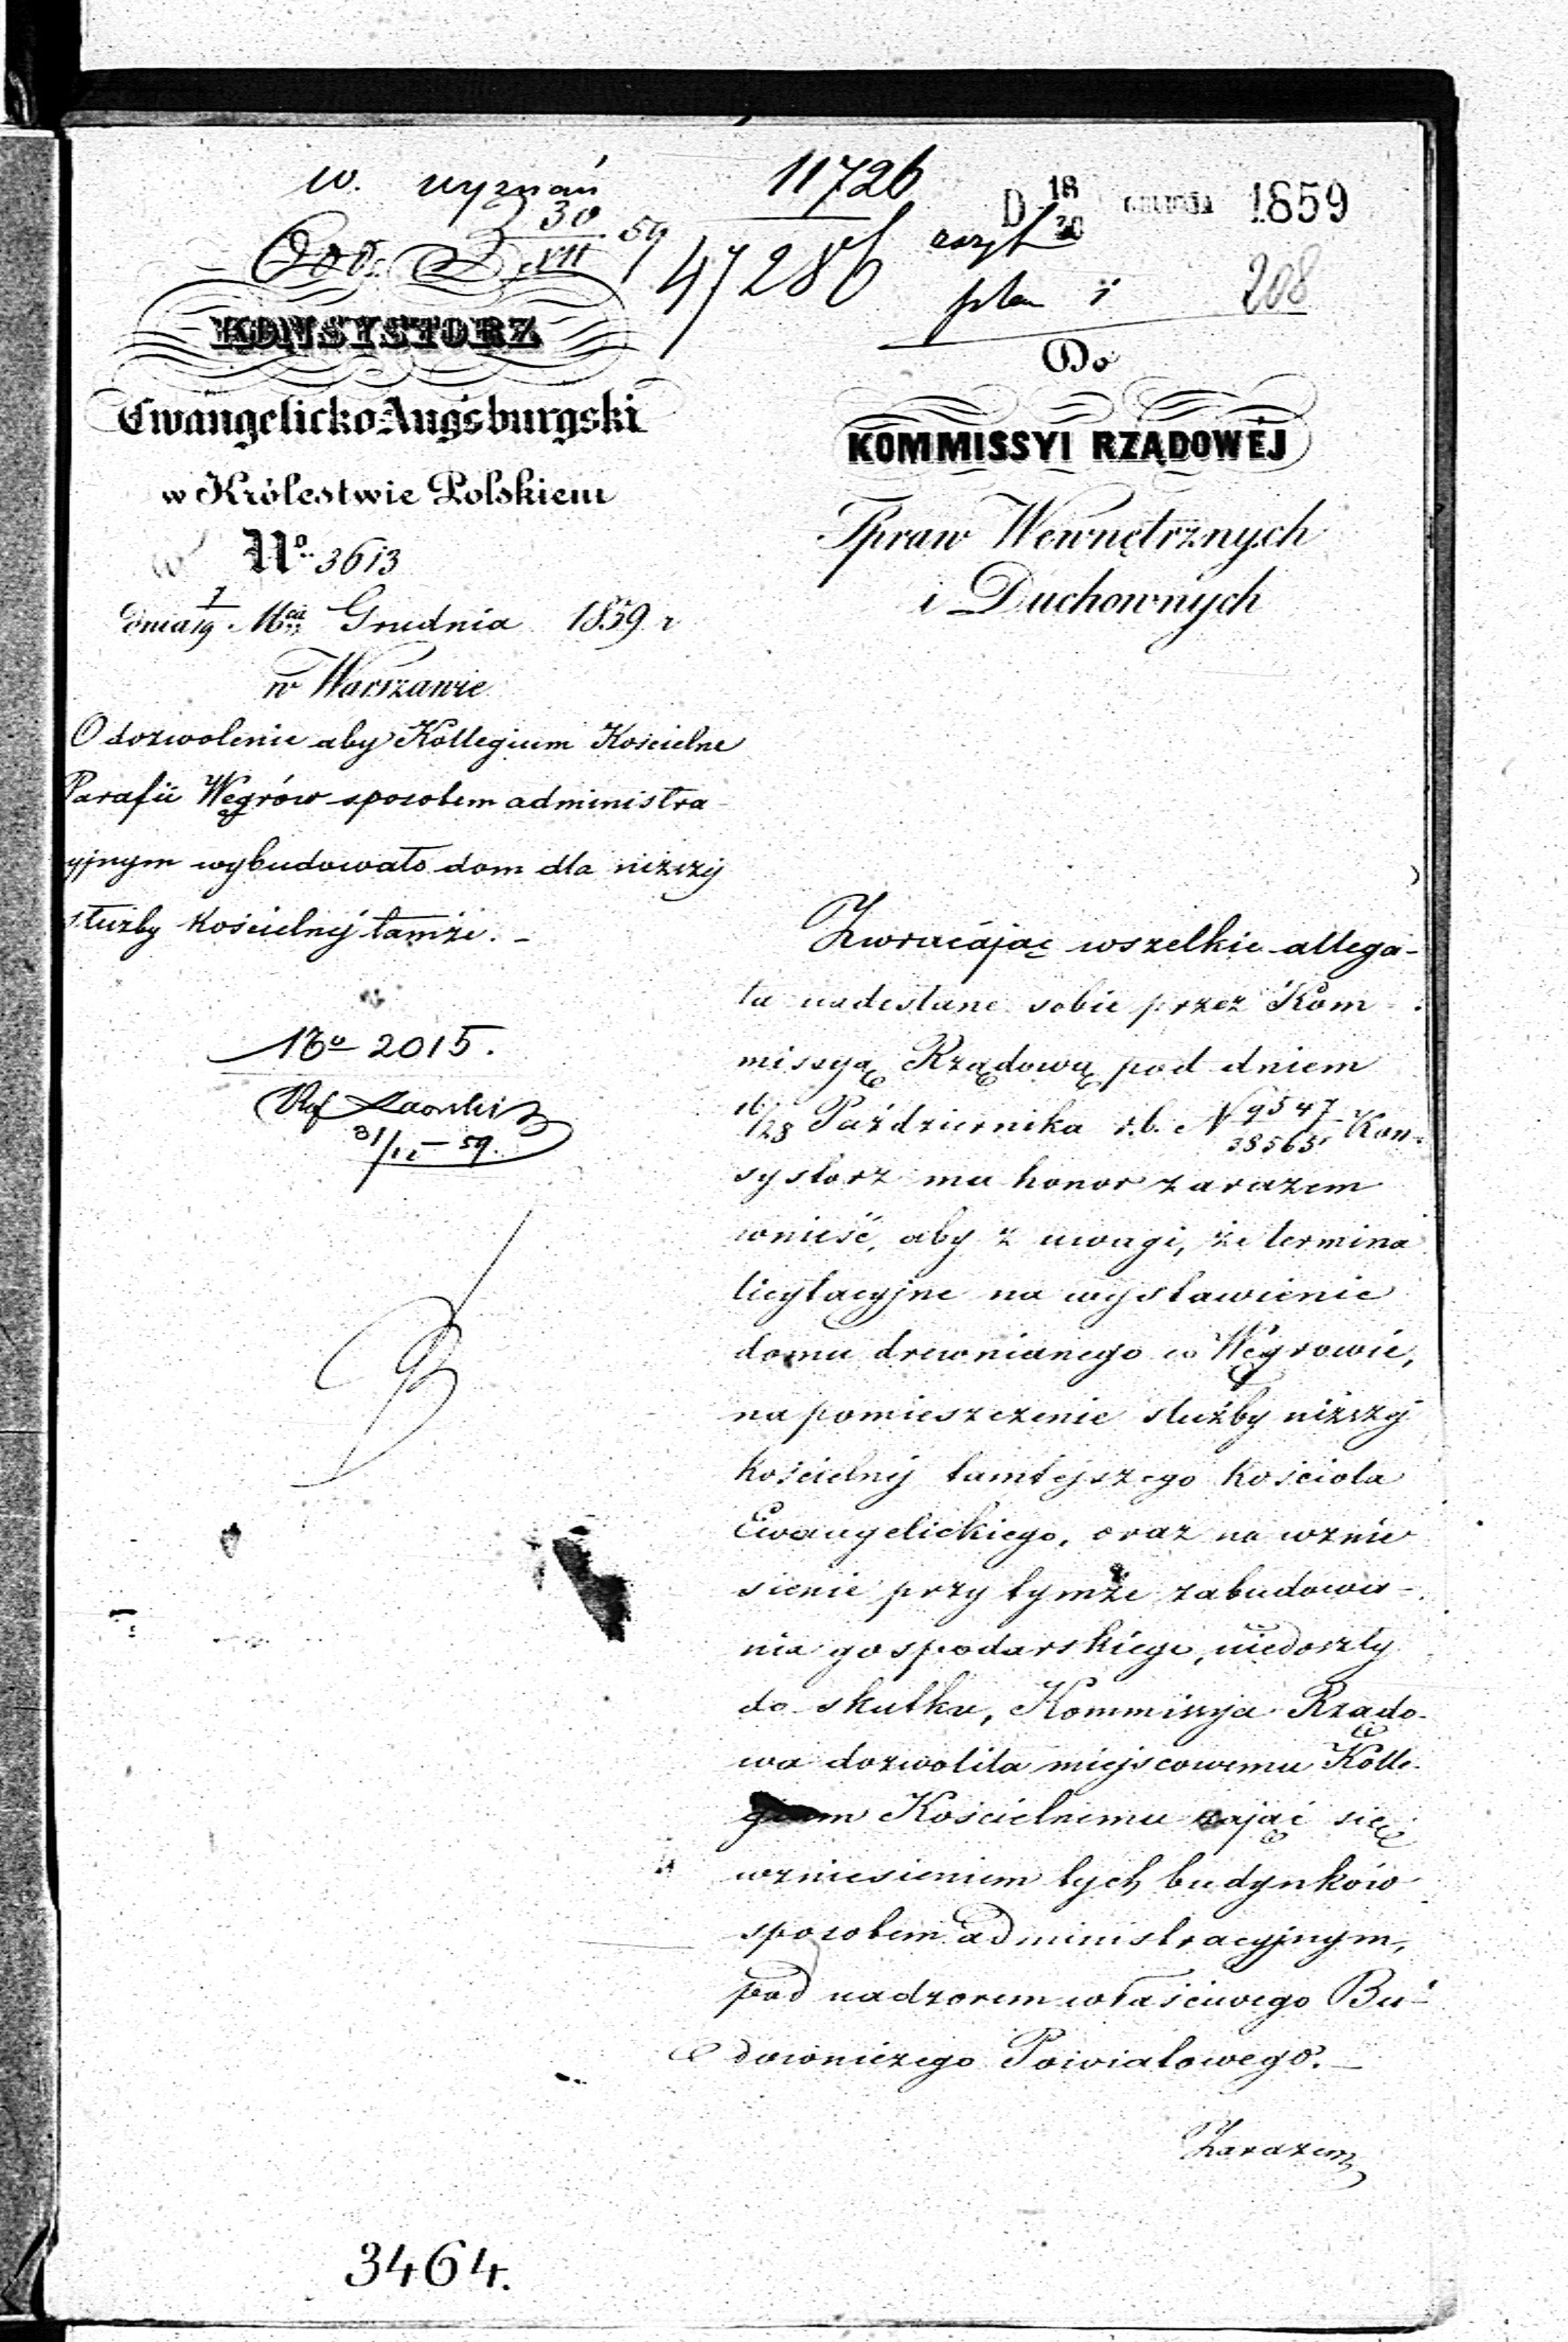 w. wyznań
11726
D 18/30 GRUDNIA 1859
30/XII 59
47286
plan 1
208
KONSYSTORZ
Ewangelicko-Augsburgski
w Królestwie Polskiem
No. 3613
dnia 7/19 Mca Grudnia 1859 r
w Warszawie
O dozwolenie aby Kollegium Kościelne
Parafii Węgrów sposobem administra-
yjnym wybudowało dom dla niższéj
służby Kościelnéj tamże. -
No 2015.
31/12 - 59.
Do
KOMMISSYI RZĄDOWÉJ
Spraw Wewnętrznych
i Duchownych
Zwracając wszelkie allega-
ta nadesłane sobie przez Kom-
missyą Rządową pod dniem
16/28 Października r.b. N 9547/38565 Kon-
systorz ma honor zarazem
wnieść, aby z uwagi, że termina
licytacyjne na wystawienie
domu drewnianego w Węgrowie,
na pomieszczenie służby niższéj
kościelnéj tamtejszego kościoła
Ewangelickiego, oraz na wznie
sienie przy tymże zabudowa-
nia gospodarskiego, niedoszły
do skutku, Kommissyja Rządo-
wa dozwoliła miejscowemu Kolle-
gium Kościelnemu zająć się
wzniesieniem tych budynków
sposobem administracyjnym,
pod nadzorem właściwego Bu-
downiczego Powiatowego. -
Zarazem
3464.